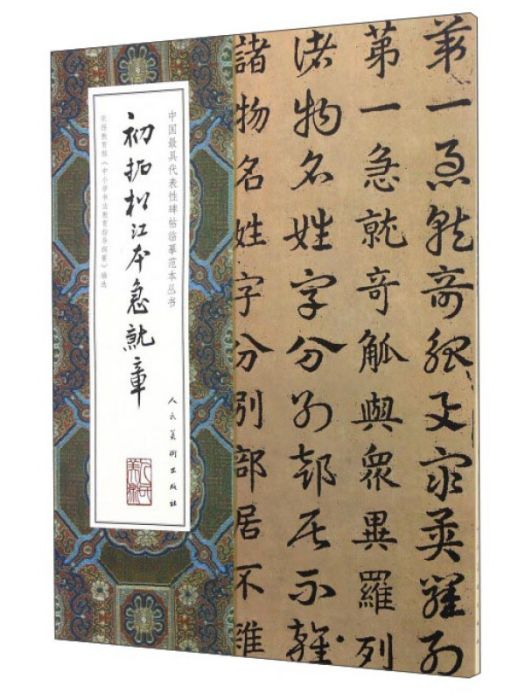 中国最具代表性碑帖临摹范本丛书
初拓松江本急就章
依据教育部《中小学书法教育指导纲要》编选
人民美术出版社
第一急就奇觚與眾異羅列
第一急就奇觚與眾異羅列
諸物名姓字分別部居不雜
諸物名姓字分別部居不雜